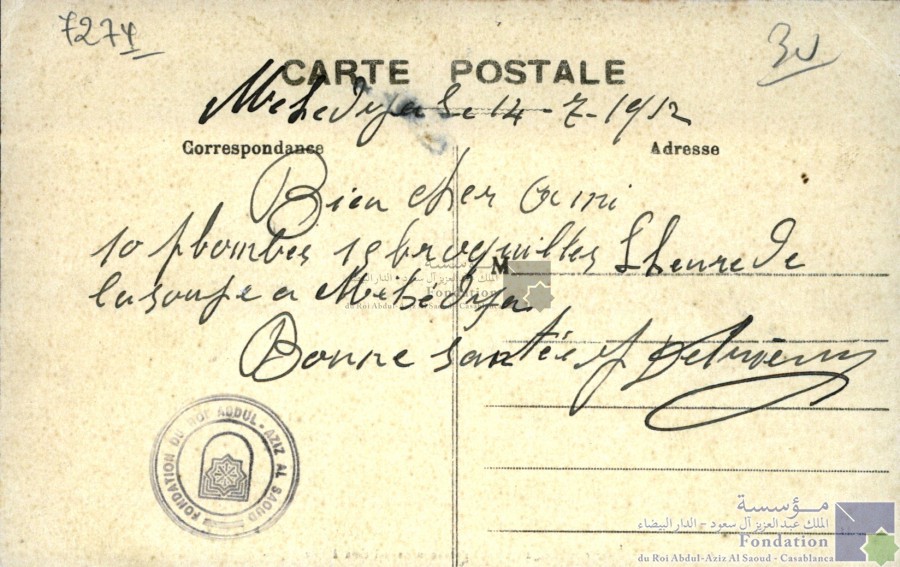 7274
30
CARTE POSTALE
Mehedya le 14-7-1912
Correspondance
Adresse
Bien cher ami
10 plombes 15 broquilles l'heure de
la soupe a Mehédya
Bonne santée
M
مؤسسة
الملك عبد العزيز آل سعود - الدار البيضاء
Fondation
du Roi Abdul-Aziz Al Saoud - Casablanca
FONDATION DU ROI ABDUL-AZIZ AL SAOUD
مؤسسة
الملك عبد العزيز آل سعود - الدار البيضاء
Fondation
du Roi Abdul-Aziz Al Saoud - Casablanca